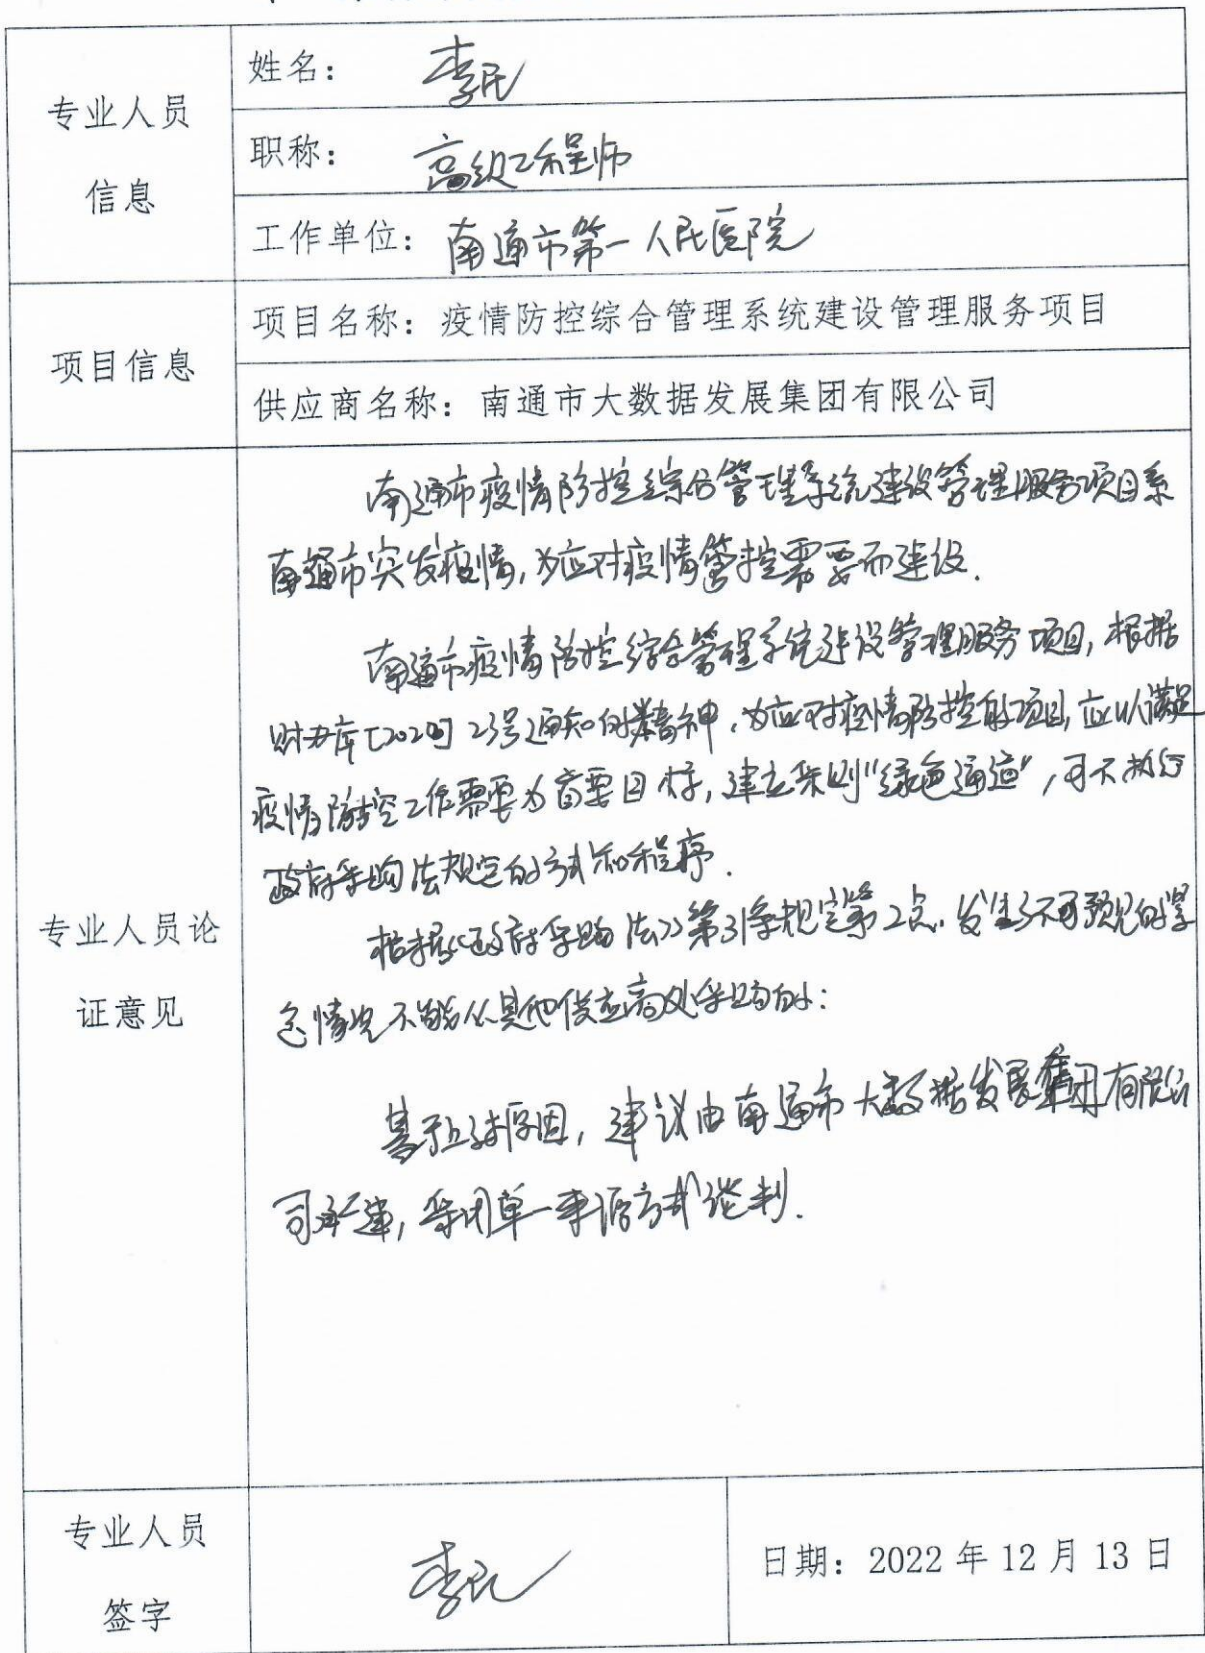 专业人员
信息
姓名： 李民
职称： 高级工程师
工作单位： 南通市第一人民医院
项目信息
项目名称：疫情防控综合管理系统建设管理服务项目
供应商名称：南通市大数据发展集团有限公司
专业人员论
证意见
南通市疫情防控综合管理系统建设管理服务项目系
南通市突发疫情，为应对疫情管控需要而建设.
南通市疫情防控综合管理系统建设管理服务项目，根据
财办库[2020]23号通知的精神，为应对疫情防控的项目，应以满足
疫情防控工作需要为首要目标，建立采购"绿色通道"，可不执行
政府采购法规定的方式和程序.
根据《政府采购法》第31条规定第2点.发生了不可预见的紧
急情况不能从其他供应商处采购的：
基于上述原因，建议由南通市大数据发展集团有限公
司承建，采用单一来源方式谈判.
专业人员
签字
李民
日期：2022年12月13日